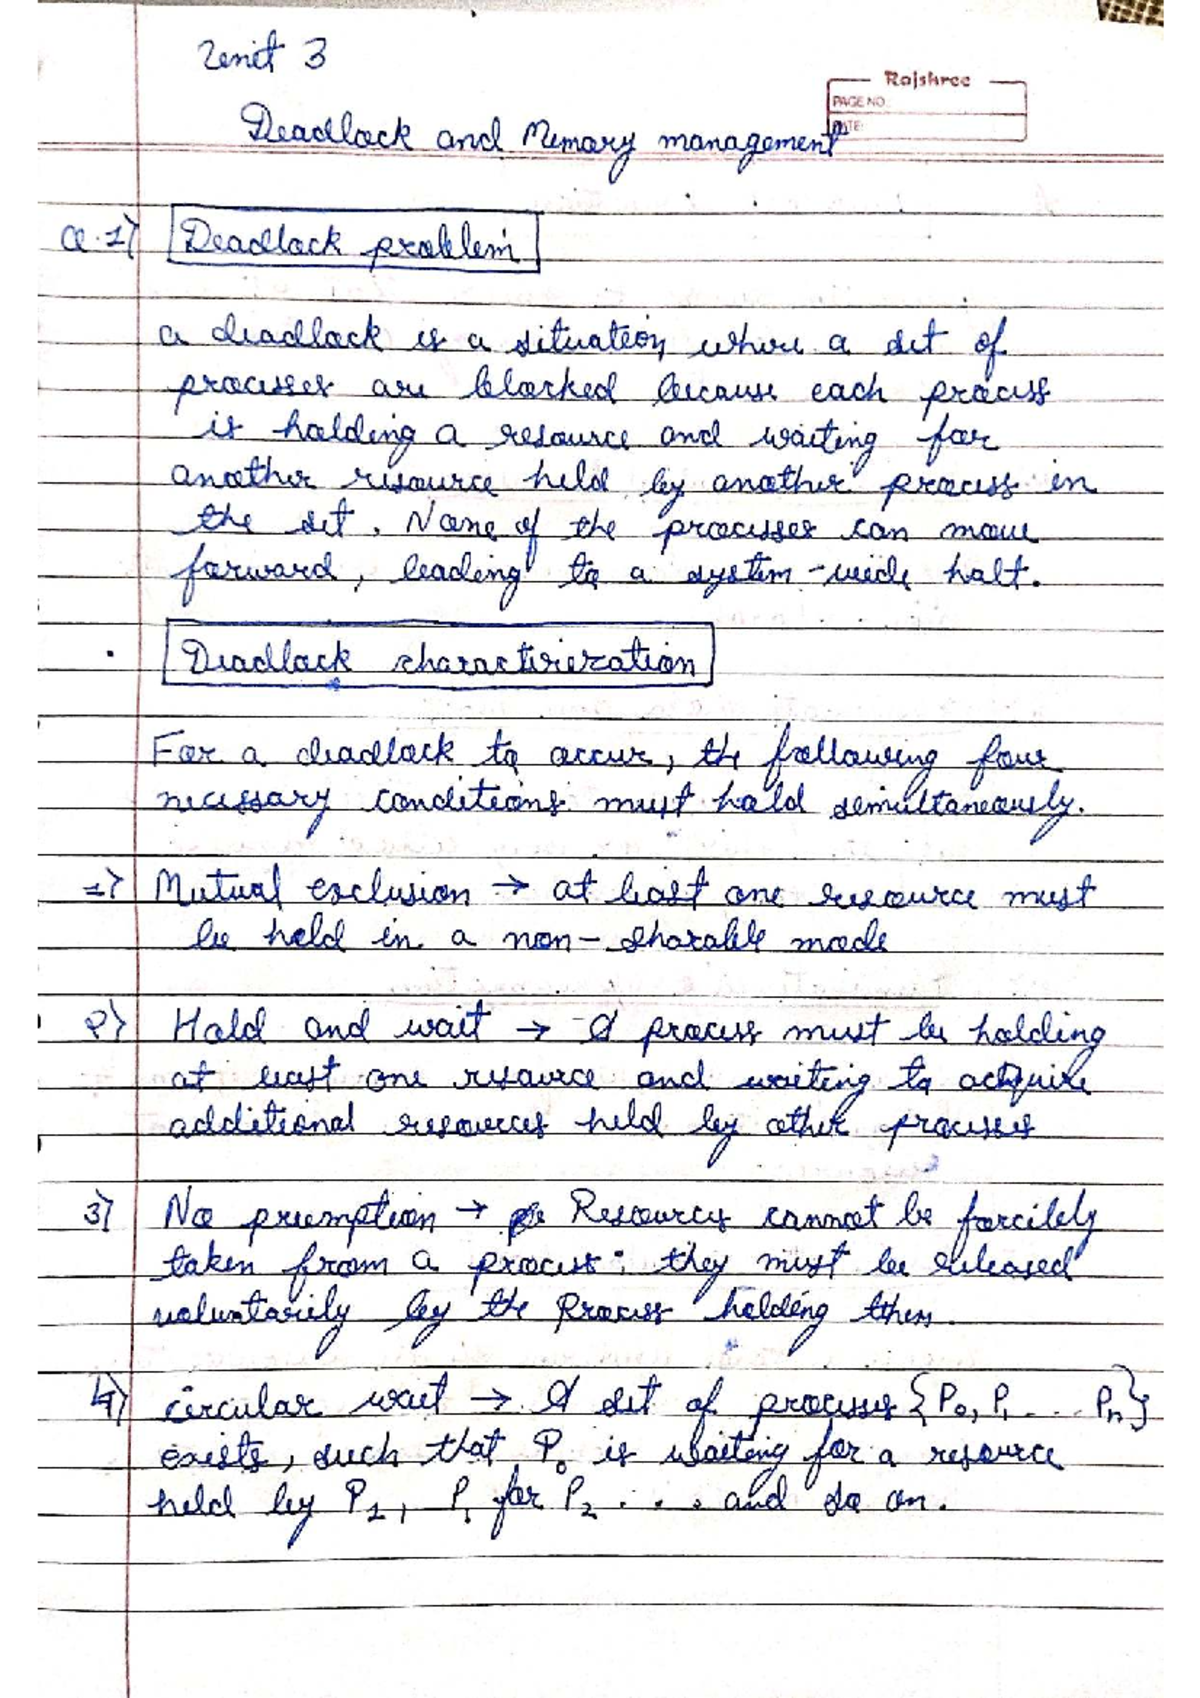 Unit 3
Rajshree
PAGE NO.
DATE:
Deadlock and Memory management
Q.1) Deadlock problem
a deadlock is a situation where a set of
processes are blocked because each process
is holding a resource and waiting for
another resource held by another process in
the set. None of the processes can move
forward, leading to a system-wide halt.
. Deadlock characterization
For a deadlock to occur, the following four
necessary conditions must hold simultaneously.
1) Mutual exclusion → at least one resource must
be held in a non-sharable mode
2) Hold and wait → A process must be holding
at least one resource and waiting to acquire
additional resources held by other processes
3) No preemption → Resources cannot be forcibly
taken from a process: they must be released
voluntarily by the Process holding them.
4) circular wait → A set of processes {P0, P1 .... Pn}
exists, such that P0 is waiting for a resource
held by P1, P1 for P2 ... and so on.